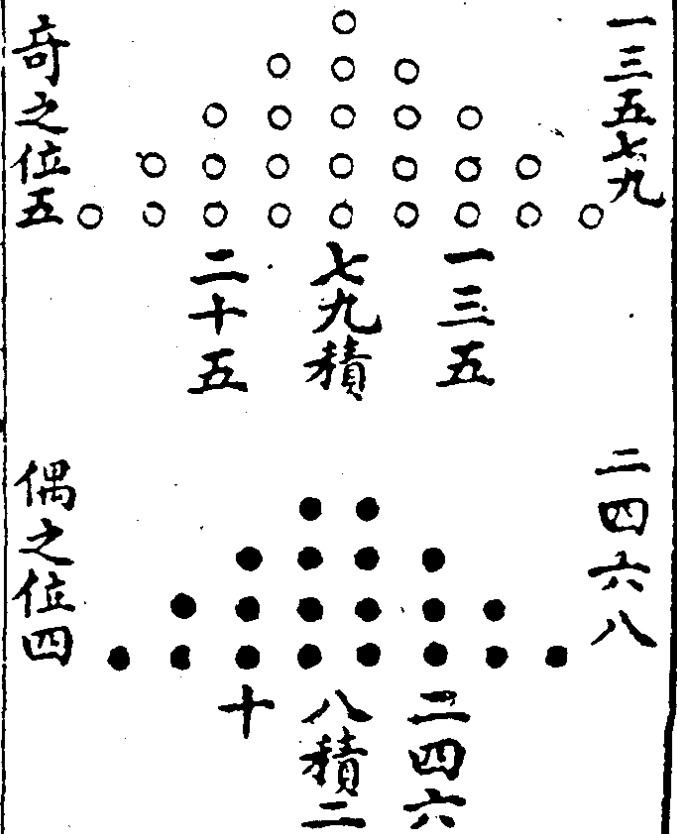 一三五七九
一三五
七九積
二十五
奇之位五
二四六八
二四六
八積二
十
偶之位四